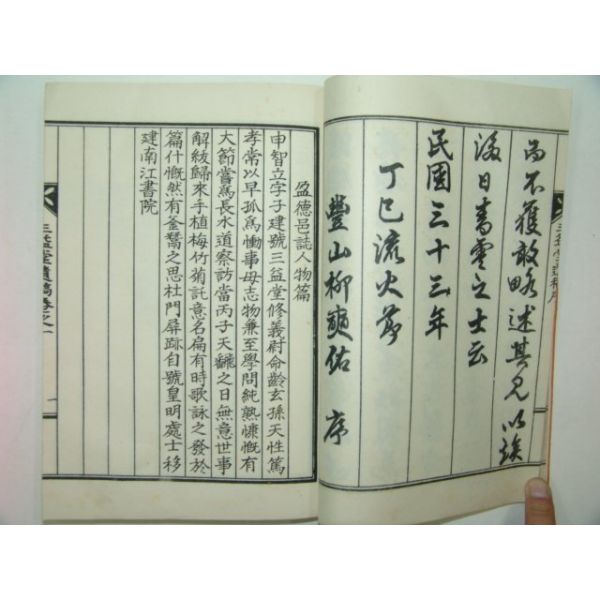 而不獲敢略述其見以竢
後日青雲之士云
民國三十三年
丁巳流火節
豐山柳奭佑 序
盈德邑誌人物篇
申智立字子建號三益堂修義尉命齡玄孫天性篤
孝常以早孤爲慟事母志物兼至學問純熟慷慨有
大節嘗爲長水道察訪當丙子天飜之日無意世事
解紱歸來手植梅竹菊託意名扁有時歌詠之發於
篇什慨然有釜鬵之思杜門屛跡自號皇明處士移
建南江書院
三益堂遺稿卷之一